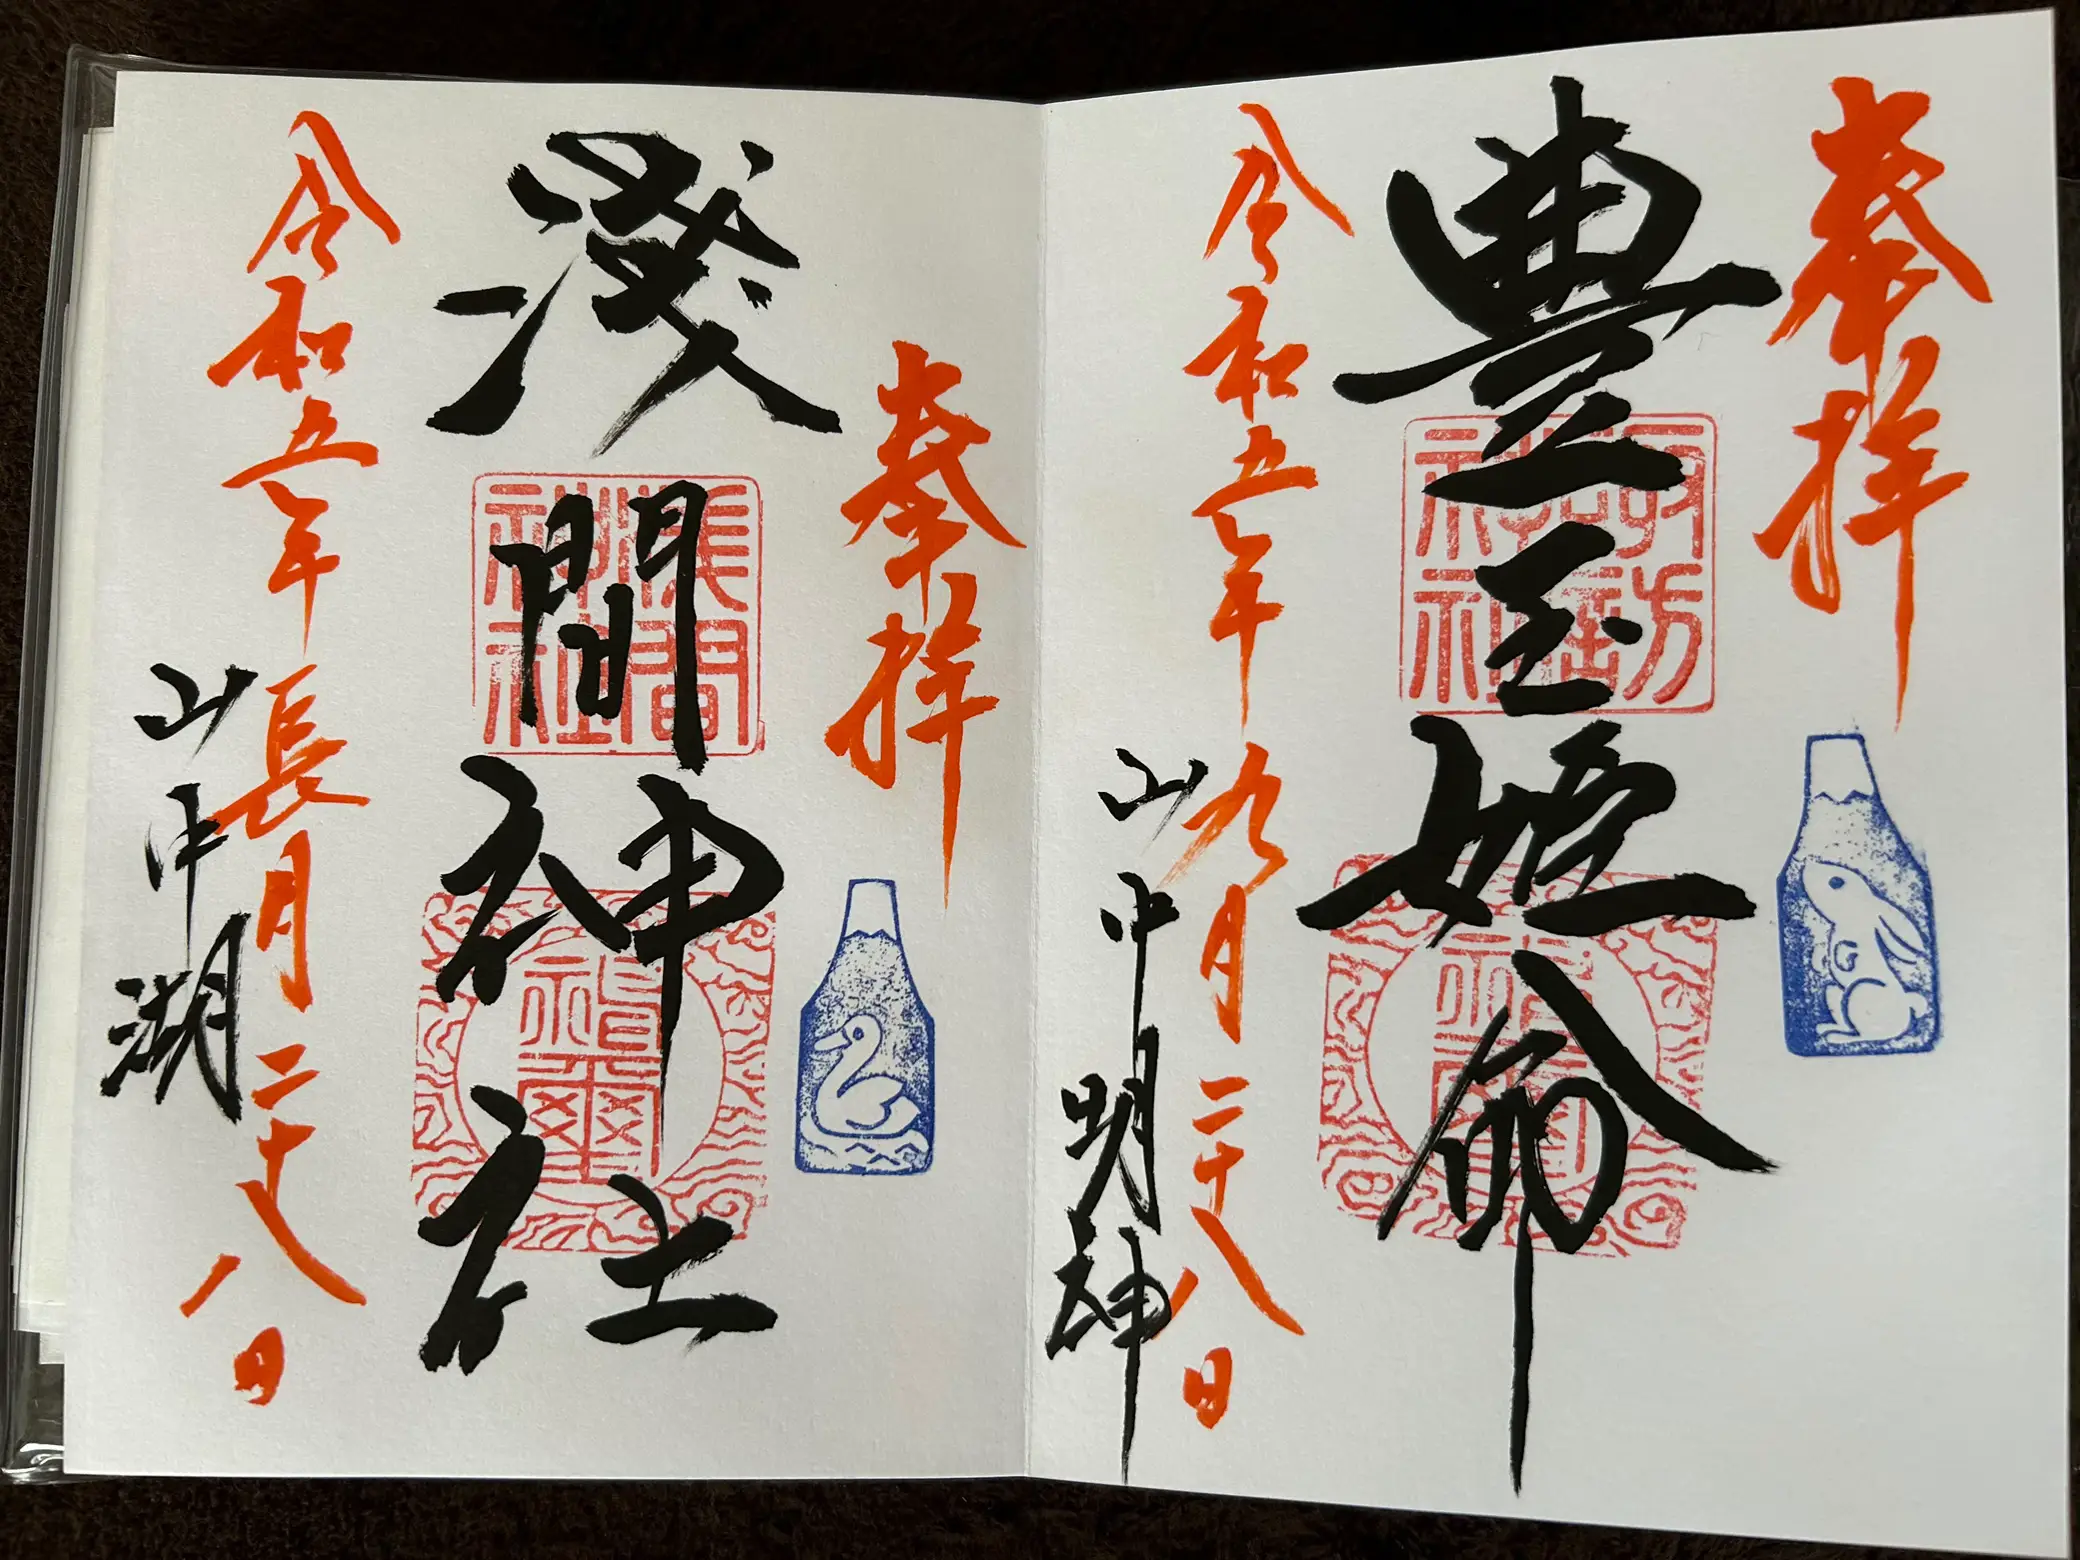 奉拝
豊玉姫命
令和五年九月二十八日
山中明神
奉拝
淺間神社
浅間神社
令和五年長月二十八日
山中湖